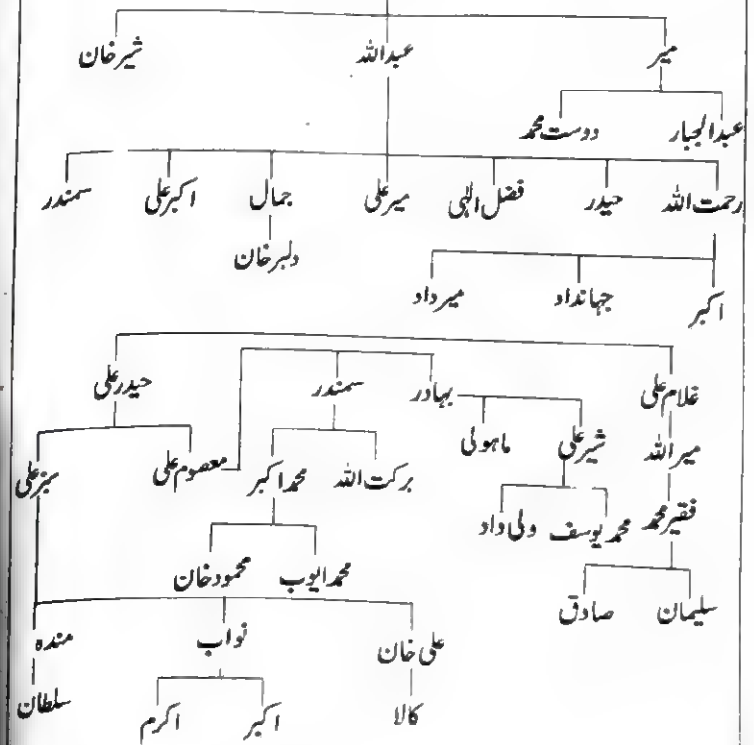 میر عبداللہ شیرخان
عبدالجبار دوست محمد
رحمت اللہ حیدر فضل الٰہی میرعلی جمال اکبرعلی سمندر
دلبرخان
اکبر جہانداد میرداد
غلام علی بہادر سمندر حیدرعلی
میراللہ شیرعلی ماہولی برکت اللہ محمداکبر معصوم علی سبزعلی
فقیرمحمد محمدیوسف ولی داد
محمدایوب محمودخان
سلیمان صادق
علی خان نواب مندہ
کالا اکبر اکرم سلطان